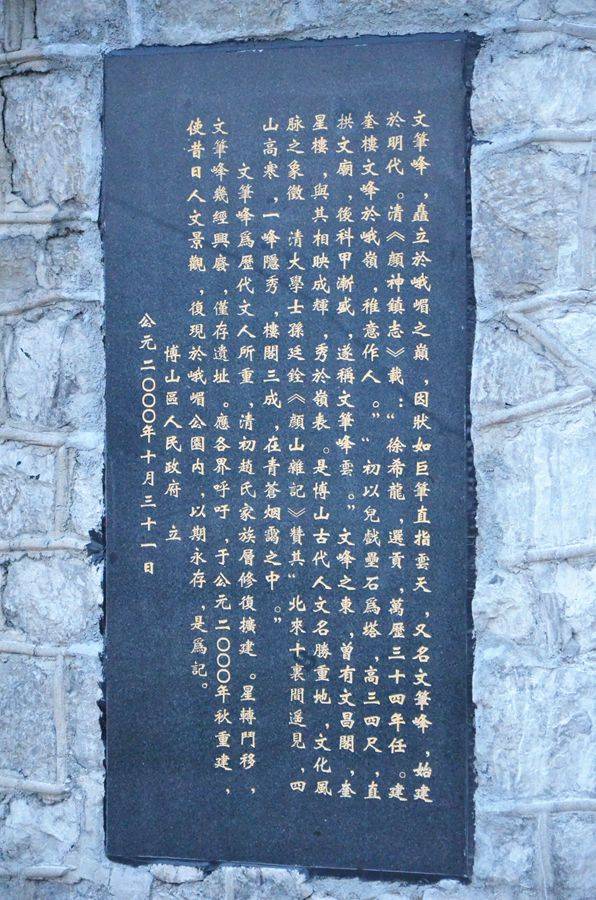 文筆峰，矗立於峨嵋之巔，因狀如巨筆直指雲天，又名文筆峰，始建
於明代。清《顏神鎮志》載：“徐希龍，選貢，萬歷三十四年任。建
奎樓文峰於峨嶺，稚意作人。”“初以兒戲壘石爲塔，高三四尺，直
拱文廟，後科甲漸盛，遂稱文筆峰雲。”文峰之東，曾有文昌閣，奎
星樓，與其相映成輝，秀於嶺表。是博山古代人文名勝重地，文化風
脉之象徵。清大學士孫廷銓《顏山雜記》贊其“北來十裏間遥見，四
山高寒，一峰隱秀，樓閣三成，在青蒼烟靄之中。”
文筆峰爲歷代文人所重，清初趙氏家族層修復擴建。星轉鬥移，
文筆峰幾經興廢，僅存遺址。應各界呼吁，于公元二〇〇〇年秋重建，
使昔日人文景觀，復現於峨嵋公園内，以期永存，是爲記。
博山區人民政府 立
公元二〇〇〇年十月三十一日